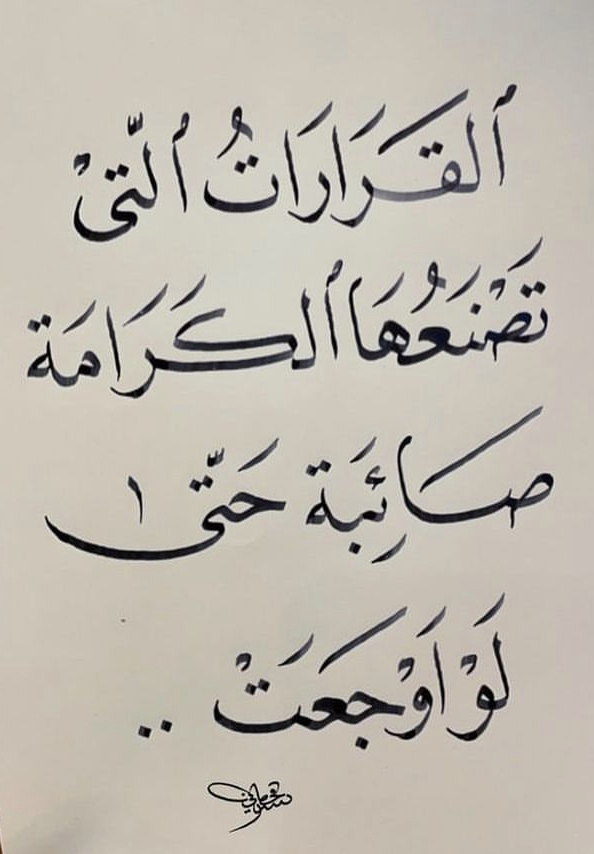 ٱلقَرَارَاتُ ٱلّتىْ
تَصْنَعُهَا ٱلكَرَامَة
صَائِبَة حَتّى
لَوْ اَوْجَعَتْ ..